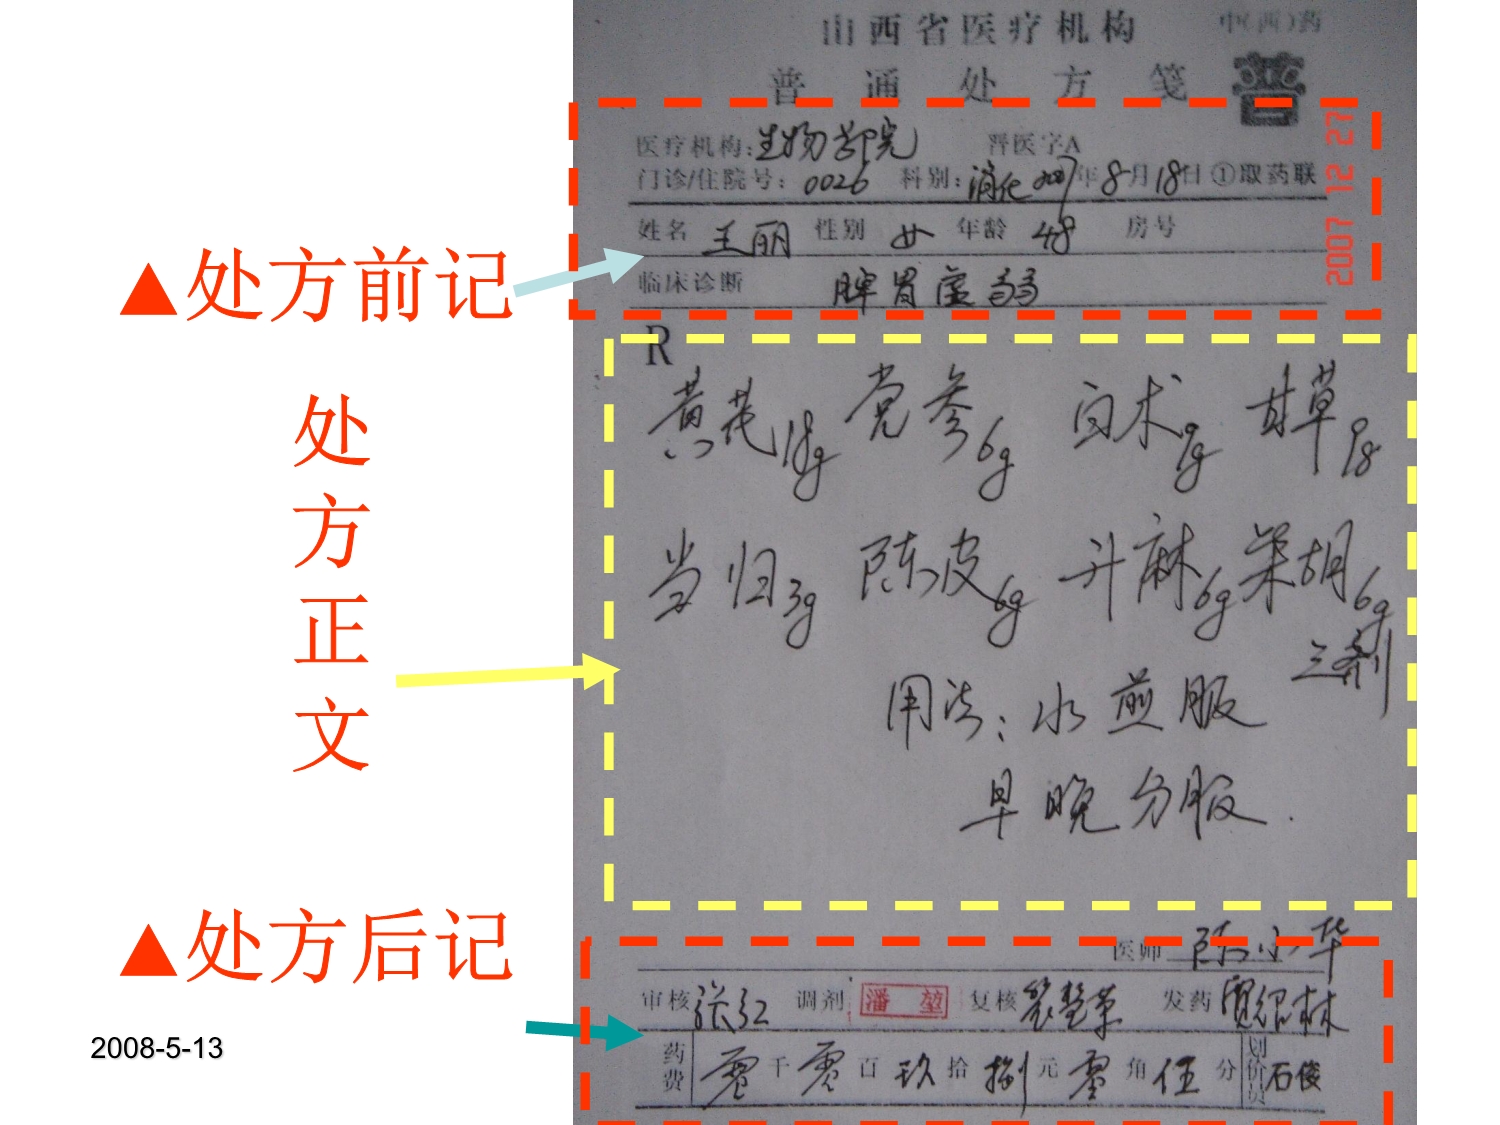 山西省医疗机构 中(西)药
普通处方笺 普
医疗机构: 生物部院 晋医字A
门诊/住院号: 0026 科别: 消化 2007年8月18日 ①取药联
姓名 王丽 性别 女 年龄 48 房号
临床诊断 脾胃虚弱
2007 12 27
▲处方前记
R
黄芪18g 党参6g 白术9g 甘草9g
当归3g 陈皮6g 升麻6g 柴胡6g
三剂
用法: 水煎服
早晚分服.
处方正文
▲处方后记
医师 陈小华
审核 张红 调剂 潘堃 复核 发药 贾绍林
药费 零千零百玖拾捌元零角伍分 划价员 石俊
2008-5-13